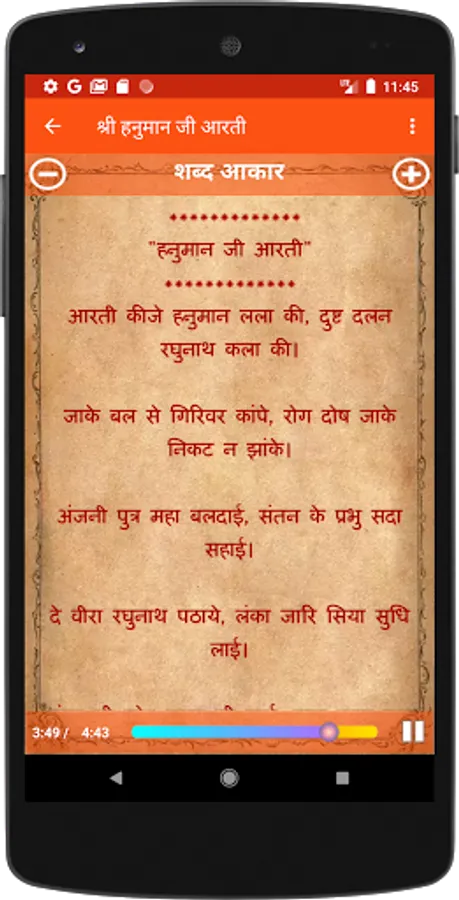 11:45
श्री हनुमान जी आरती
शब्द आकार
"हनुमान जी आरती"
आरती कीजे हनुमान लला की, दुष्ट दलन
रघुनाथ कला की।
जाके बल से गिरिवर कांपे, रोग दोष जाके
निकट न झांके।
अंजनी पुत्र महा बलदाई, संतन के प्रभु सदा
सहाई।
दे वीरा रघुनाथ पठाये, लंका जारि सिया सुधि
लाई।
3:49 / 4:43